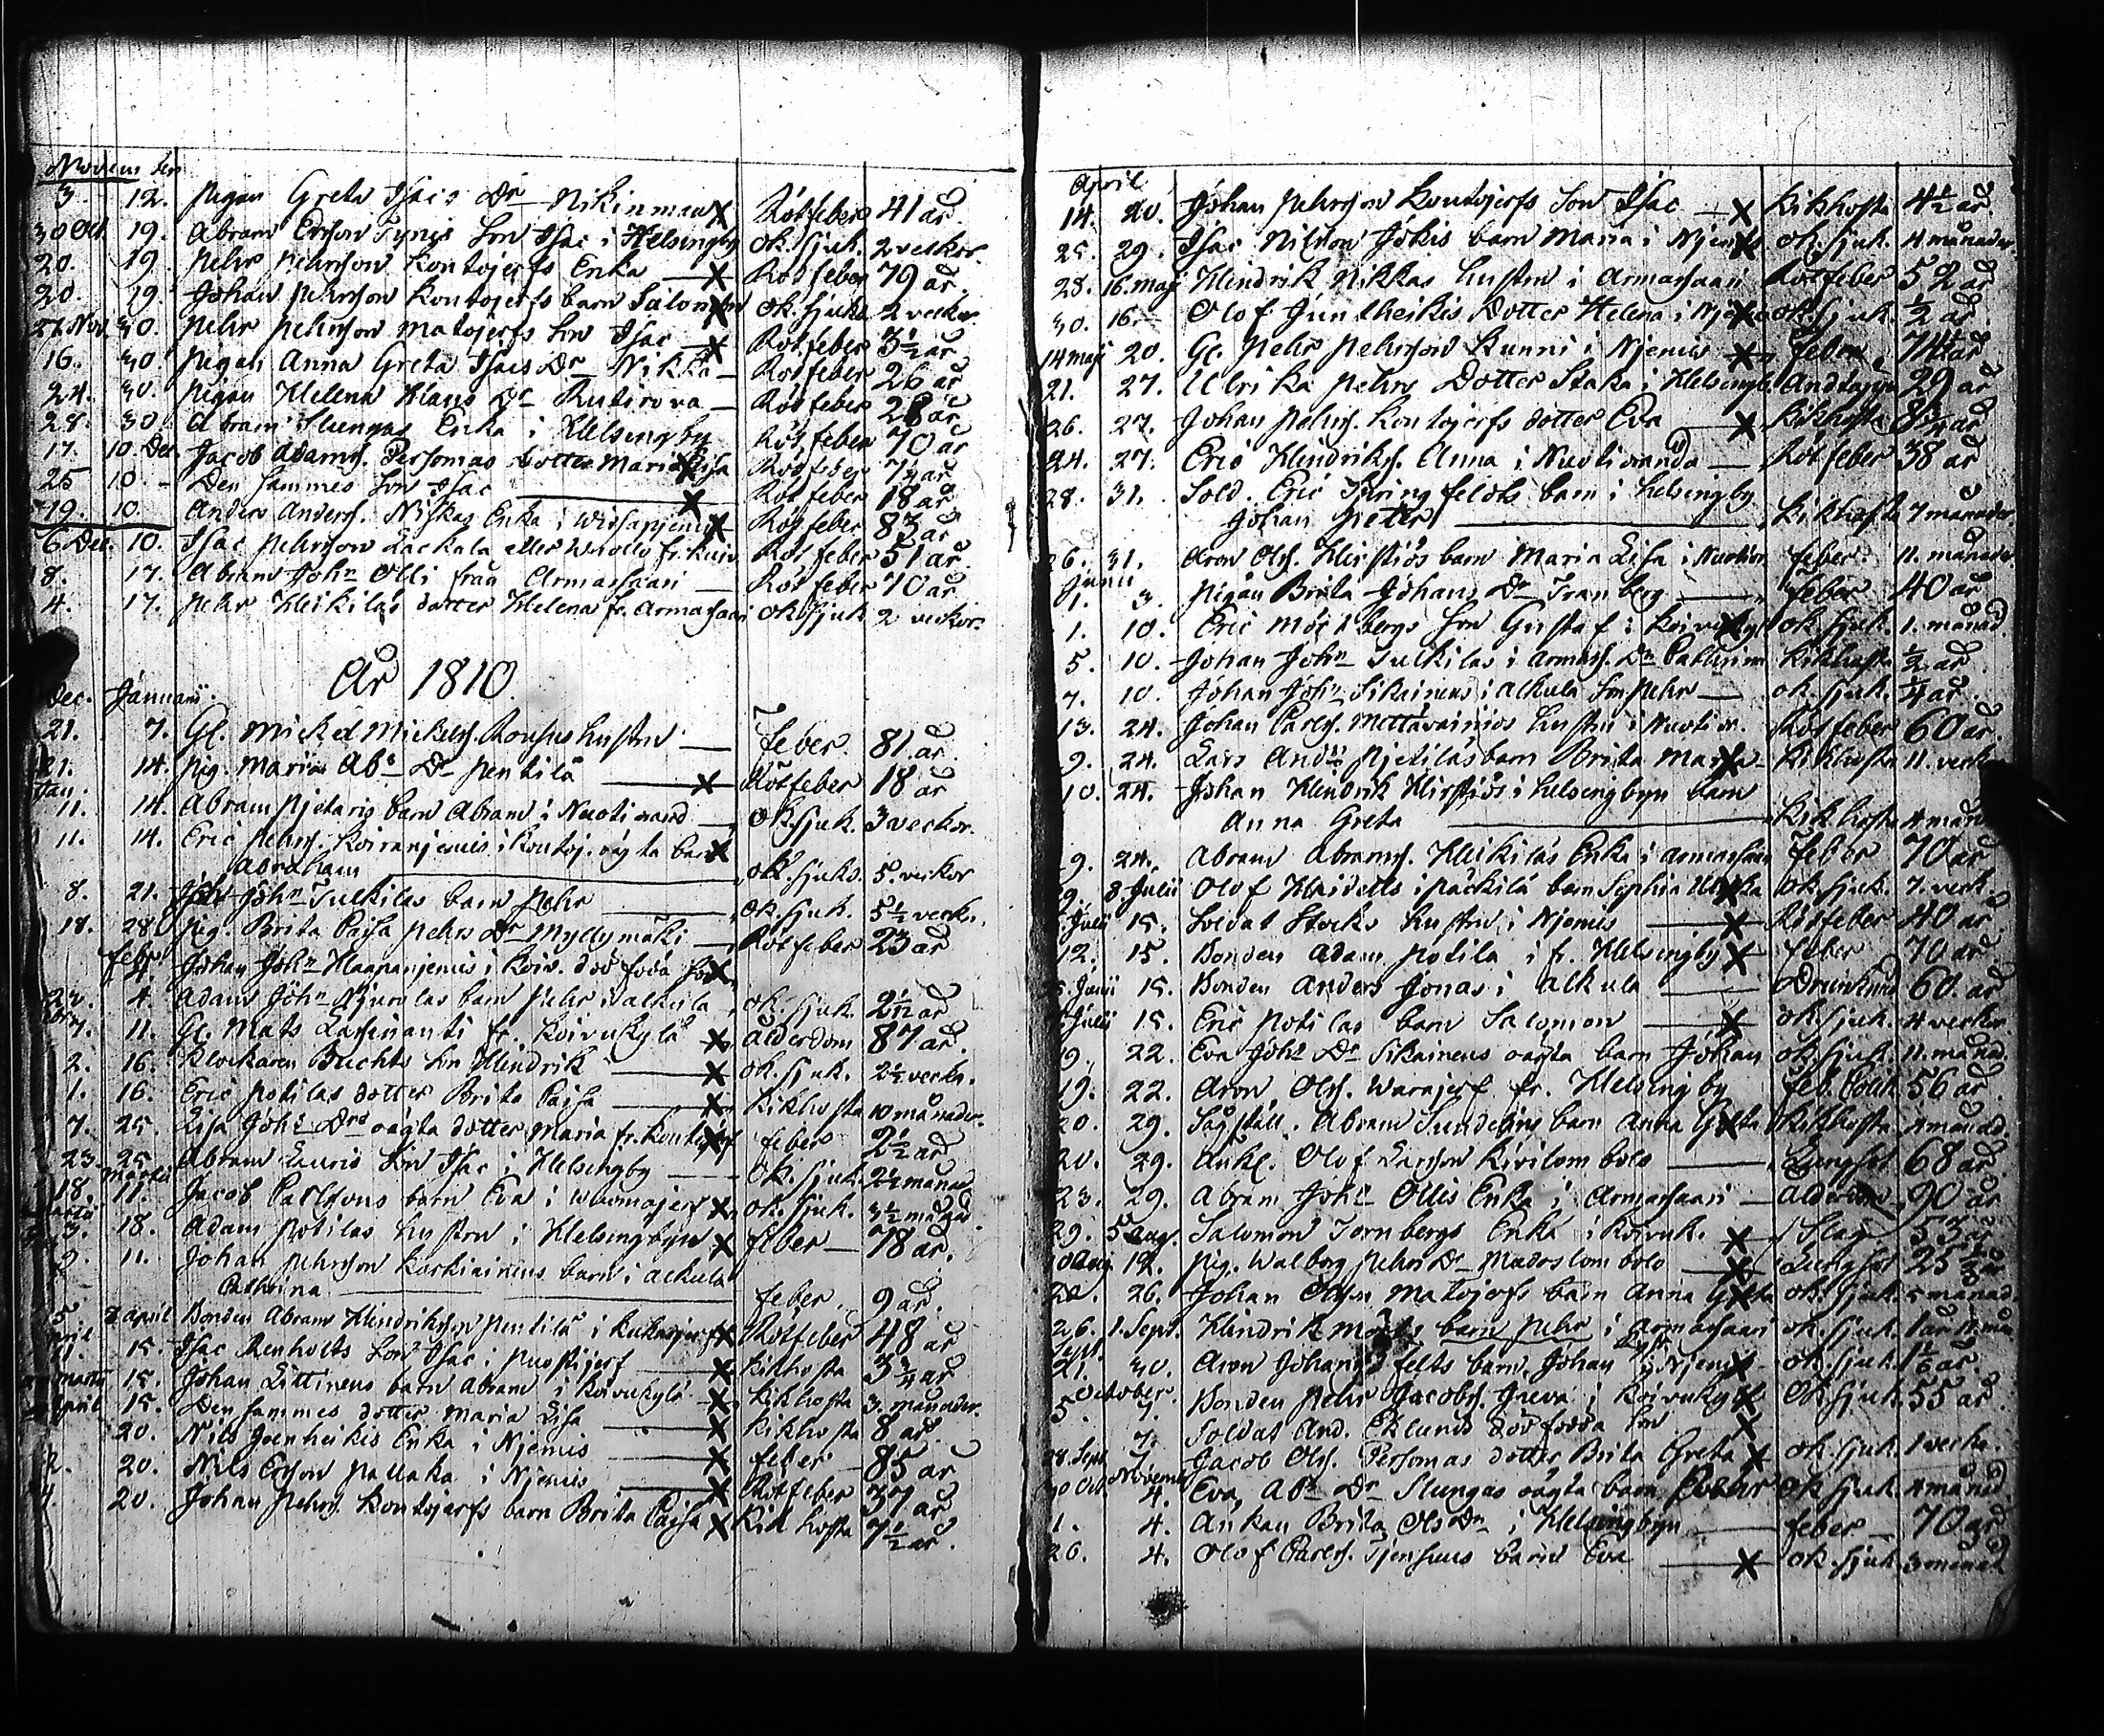 November
3. 12. Pigan Greta Isacs Dr Nikinmaa Rötfeber 41 år.
30 Oct. 19. Abram Ersson Tynis Son Isac i Helsingby ok. sjuk. 2 veckor.
20. 19. Pehr Pehrsson Kontojerfs Enka Rötfeber 79 år.
20. 19. Johan Pehrsson Kontojerfs barn Salomon ok. sjuk 2 veckor.
Nov. 30. Pehr Pehrsson Matojerfs Son Isac Rötfeber 3½ år
16. 30. Pigan Anna Greta Isacs Dr Nikka Rötfeber 26 år
24. 30. Pigan Helena Klaus Dr Rutirova Rötfeber 28 år
28. 30. Abram Slungas Enka i Helsingby Rötfeber 70 år
17. 10. Dec. Jacob Adams. Persomas dotter Maria Lisa Rötfeber år
25 10. Den sammes Son Isac Rötfeber 18 år
29. 10. Anders Anders. Niskas Enka i Rötfeber 83 år
6 Dec. 10. Isac Pehrsson Lackala eller Rötfeber 51 år.
8. 17. Abram John Olli från Armassaari Rötfeber 70 år
4. 17. Pehr Heikilas dotter Helena fr. Armassaari ok. sjuk 2 veckor.
År 1810.
Dec. Januarii.
21. 7. Gl. Mickel Mickels. Hustru feber. 81 år.
21. 14. Pig. Maria Abr Dr Pentilä Rötfeber 18 år
Jan.
11. 14. Abram Pjetaris barn Abram i Nuotiorand ok. sjuk. 3 veckor.
11. 14. Eric Pehrs. Koiranjemis i Kontoj. oägta barn
Abraham ok. sjuk. 5. veckor
8. 21. John Tulkilas barn Pehr ok. sjuk. 5½ veck.
18. 28 Pig. Brita Caisa Pehrs Dr Myllymäki Rötfeber 23 år
Febr.
4. Johan John Haapanjemis i Koiv. död född
4. Adam John Njurolas barn Pehr i Alkula ok. sjuk. 2½ år
7. 11. Gl. Mats Lassinanti fr. Koivukylä Alderdom 87 år.
2. 16. Klockaren Buchts Son Hindrik ok. sjuk. 2½ veck.
1. 16. Eric Potilas dotter Brita Caisa Kikhosta 10 månader.
7. 25. Lisa Johs Drs oägta dotter Maria fr. Kontojerf feber 2½ år
23. 25 Abram Lauris Son Isac i Helsingby ok. sjuk. 2½ månad
Martii
18. 11. Jacob Carlssons barn Eva i ok. sjuk. 3½ månad.
3. 18. Adam Potilas hustru i Helsingbyn feber 78 år.
11. Johan Pehrsson Koskiainens barn i Alkula
Cathrina feber 9 år.
5. 8 April Bonden Abram Hindriksson Pentilä i Kukasjerf Rötfeber 48 år
15. Isac Renholts Son Isac i Puostijerf Kikhosta 3¾ år
Martii 15. Johan Littinens barn Abram i Koivukylä Kikhosta 3. månader.
April 15. Den sammes dotter Maria Lisa Kikhosta 8 år.
20. Nils Joenheikis Enka i Njemis feber 85 år
2. 20. Nils Ersson Pallaka i Njemis Rötfeber 37 år
20. Johan Pehrs. Kontojerfs barn Brita Caisa Kikhosta 7½ år.
April
14. 20. Johan Pehrsson Kontojerfs Son Isac Kikhosta 4½ år.
25. 29. Isac Nilsson Jökis barn Maria i Njemis ok. sjuk. 4 månader.
28. 16. maj Hindrik Nikkas hustru i Armassaari Rötfeber 52 år
30. 16. Olof Juntheikis Dotter Helena i Njemis ok. sjuk. ½ år
14 maji 20. Gl. Pehr Pehrsson Kunni i Njemis feber 74½ år
21. 27. Ulrika Pehrs Dotter Staka i Helsingb. Andtäppa 29 år
26. 27. Johan Pehrs. Kontojerfs dotter Eva Kikhosta 8¾ år
24. 27. Eric Hindriks. Anna i Nuotioranda Rötfeber 38 år
28. 31. Sold. Eric Thuringfeldts barn i Helsingby
Johan Petter Kikhosta 7 månader
26. 31. Aron Ols. Hirstiös barn Maria Lisa i Nuotior. feber. 11. månader
Junii
1. 3. Pigan Brita Johans Dr Tranberg feber 40 år
1. 10. Eric Mörtbergs Son Gustaf i Koivukyl ok. sjuk. 1. månad
5. 10. Johan John Tulkilas i Armass. Dr Cathrina Kikhosta ½ år
7. 10. Johan John Sikainens i Alkula Son Pehr ok. sjuk. ¼ år.
13. 24. Johan Carls. Mettävainios hustru i Nuotior. Rötfeber 60 år.
9. 24. Lars Ands Pjetiläs barn Brita Maria Kikhosta 11. veckor
10. 24. Johan Hindrik Hirstiös i Helsingbyn barn
Anna Greta Kikhosta 4 månad
9. 24. Abram Abrams. Heikiläs Enka i Armassaari feber 70 år
29. 8 Julii Olof Haidetts i Päckilä barn Sophia Ulrika ok. sjuk. 7. veck.
Julii 15. Soldat Stocks hustru i Njemis Rötfeber 40 år
12. 15. Bonden Adam Potila i fr. Helsingby feber 70 år
Junii 15. Bonden Anders Jonas i Alkula Drunknad 60. år
Julii 15. Eric Potilas barn Salomon ok. sjuk. 4 veckor
19. 22. Eva Johs Dr Sikainens oägta barn Johan ok. sjuk. 11. månad.
19. 22. Aron Ols. Warajerf fr. Helsingby feb. Colik 56 år
20. 29. Sågställ. Abram Sundelins barn Anna Greta Kikhosta 4 månad.
20. 29. Enkl. Olof Larsson Kivilombolo Lungsot 68 år
23. 29. Abram Johs Ollis Enka i Armassaari Alderdom 90 år
29. 5 Aug. Salomon Tornbergs Enka i Koivuk. Slag 53 år
10 Aug. 12. Pig. Walborg Pehrs Dr Madoslombolo Lungsot 25½ år
20. 26. Johan Olss. Matojerfs barn Anna Greta ok. sjuk. 5 månad.
26. 1. Sept. Hindrik barn Pehr i Armassaari ok. sjuk. 1 år 11. mån.
Sept.
21. 30. Aron Johans felts barn, Johan i Njemis ok. sjuk 1 år.
October
5 7. Bonden Pehr Jacobs. Greva i Koivukylä ok. sjuk. 55 år
7. Soldat And. Eklunds död födda Son
28. Sept. 7. Jacob Ols. Persomas dotter Brita Greta ok. sjuk. 1 vecka.
November
30 Oct. 4. Eva Abs Dr Slungas oägta barn Pehr ok. sjuk. 4 månad
1. 4. Enkan Brita Ols Dr i Helsingbyn feber 70 år
26. 4. Olof Carls. Tjenhuus barn Eva ok. sjuk. 3 månad